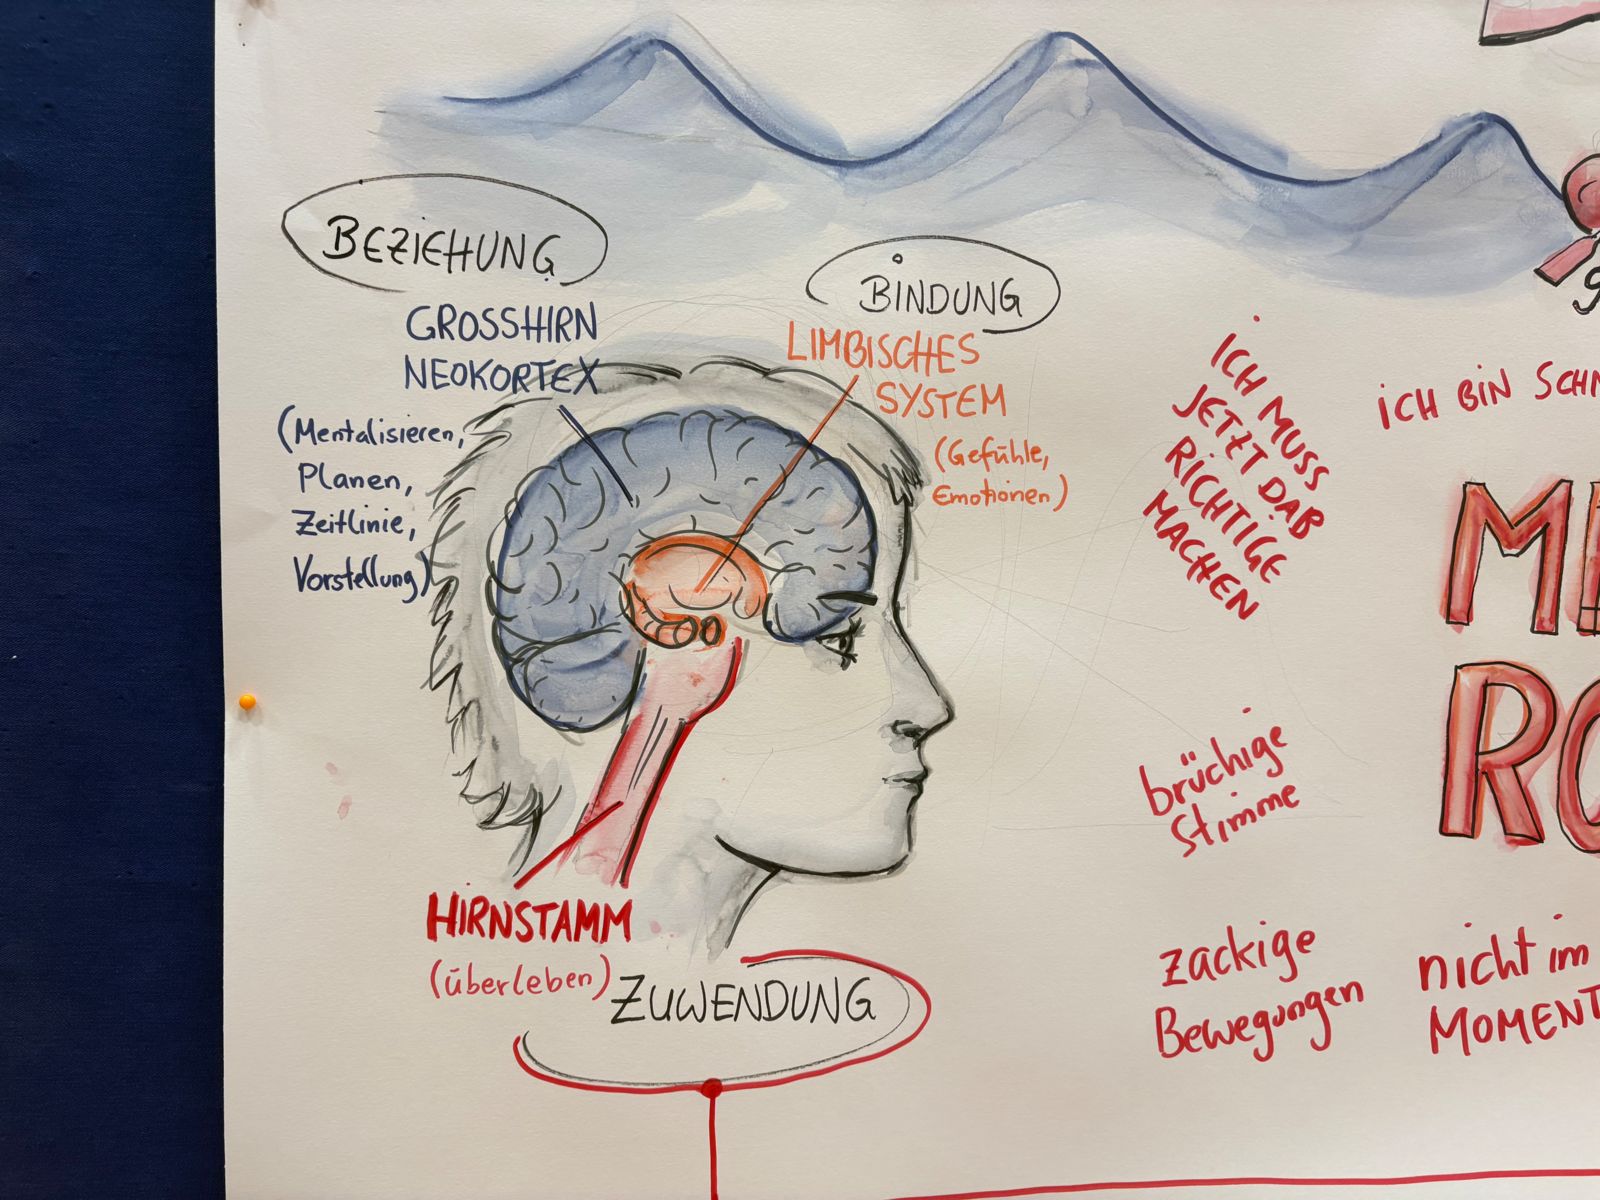 BEZiEHUNG
GROSSHIRN
NEOKORTEX
(Mentalisieren,
Planen,
Zeitlinie,
Vorstellung)
BiNDUNG
LIMBISCHES
SYSTEM
(Gefühle,
Emotionen)
HiRNSTAMM
(überleben)
ZUWENDUNG
ICH MUSS
JETZT DAß
RiCHTiGE
MACHEN
iCH BiN
brüchige
Stimme
zackige
Bewegungen
nicht im
MOMENT